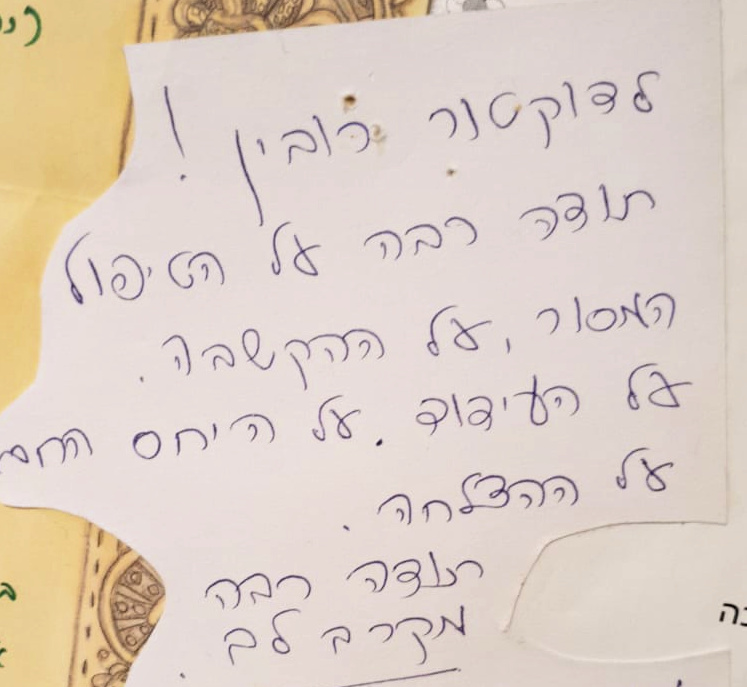 לדוקטור רובין !
תודה רבה על הטיפול
המסור, על ההקשבה.
על העידוד. על היחס החם
על ההצלחה.
תודה רבה
מקרב לב.